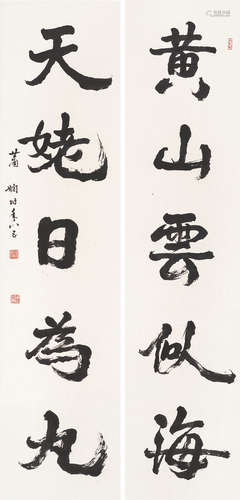 黄山雲似海
天姥日為丸
蕭嫻時年八